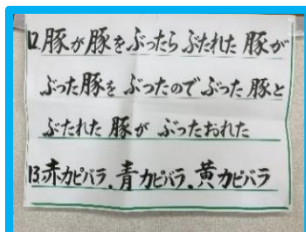 12.豚が豚をぶったらぶたれた豚が
ぶった豚をぶったのでぶった豚と
ぶたれた豚がぶったおれた
13.赤カピバラ、青カピバラ、黄カピバラ